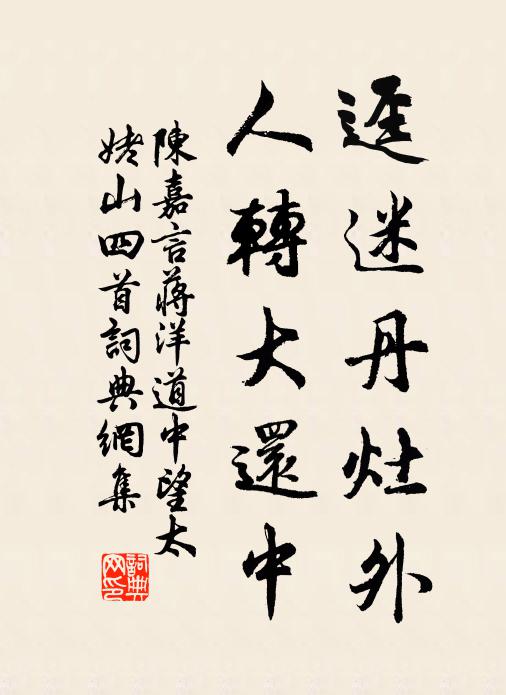 迳迷丹灶外
人轉大還中
陳嘉言蔣洋道中望太
姥山四首詞典網集
詞典
网印